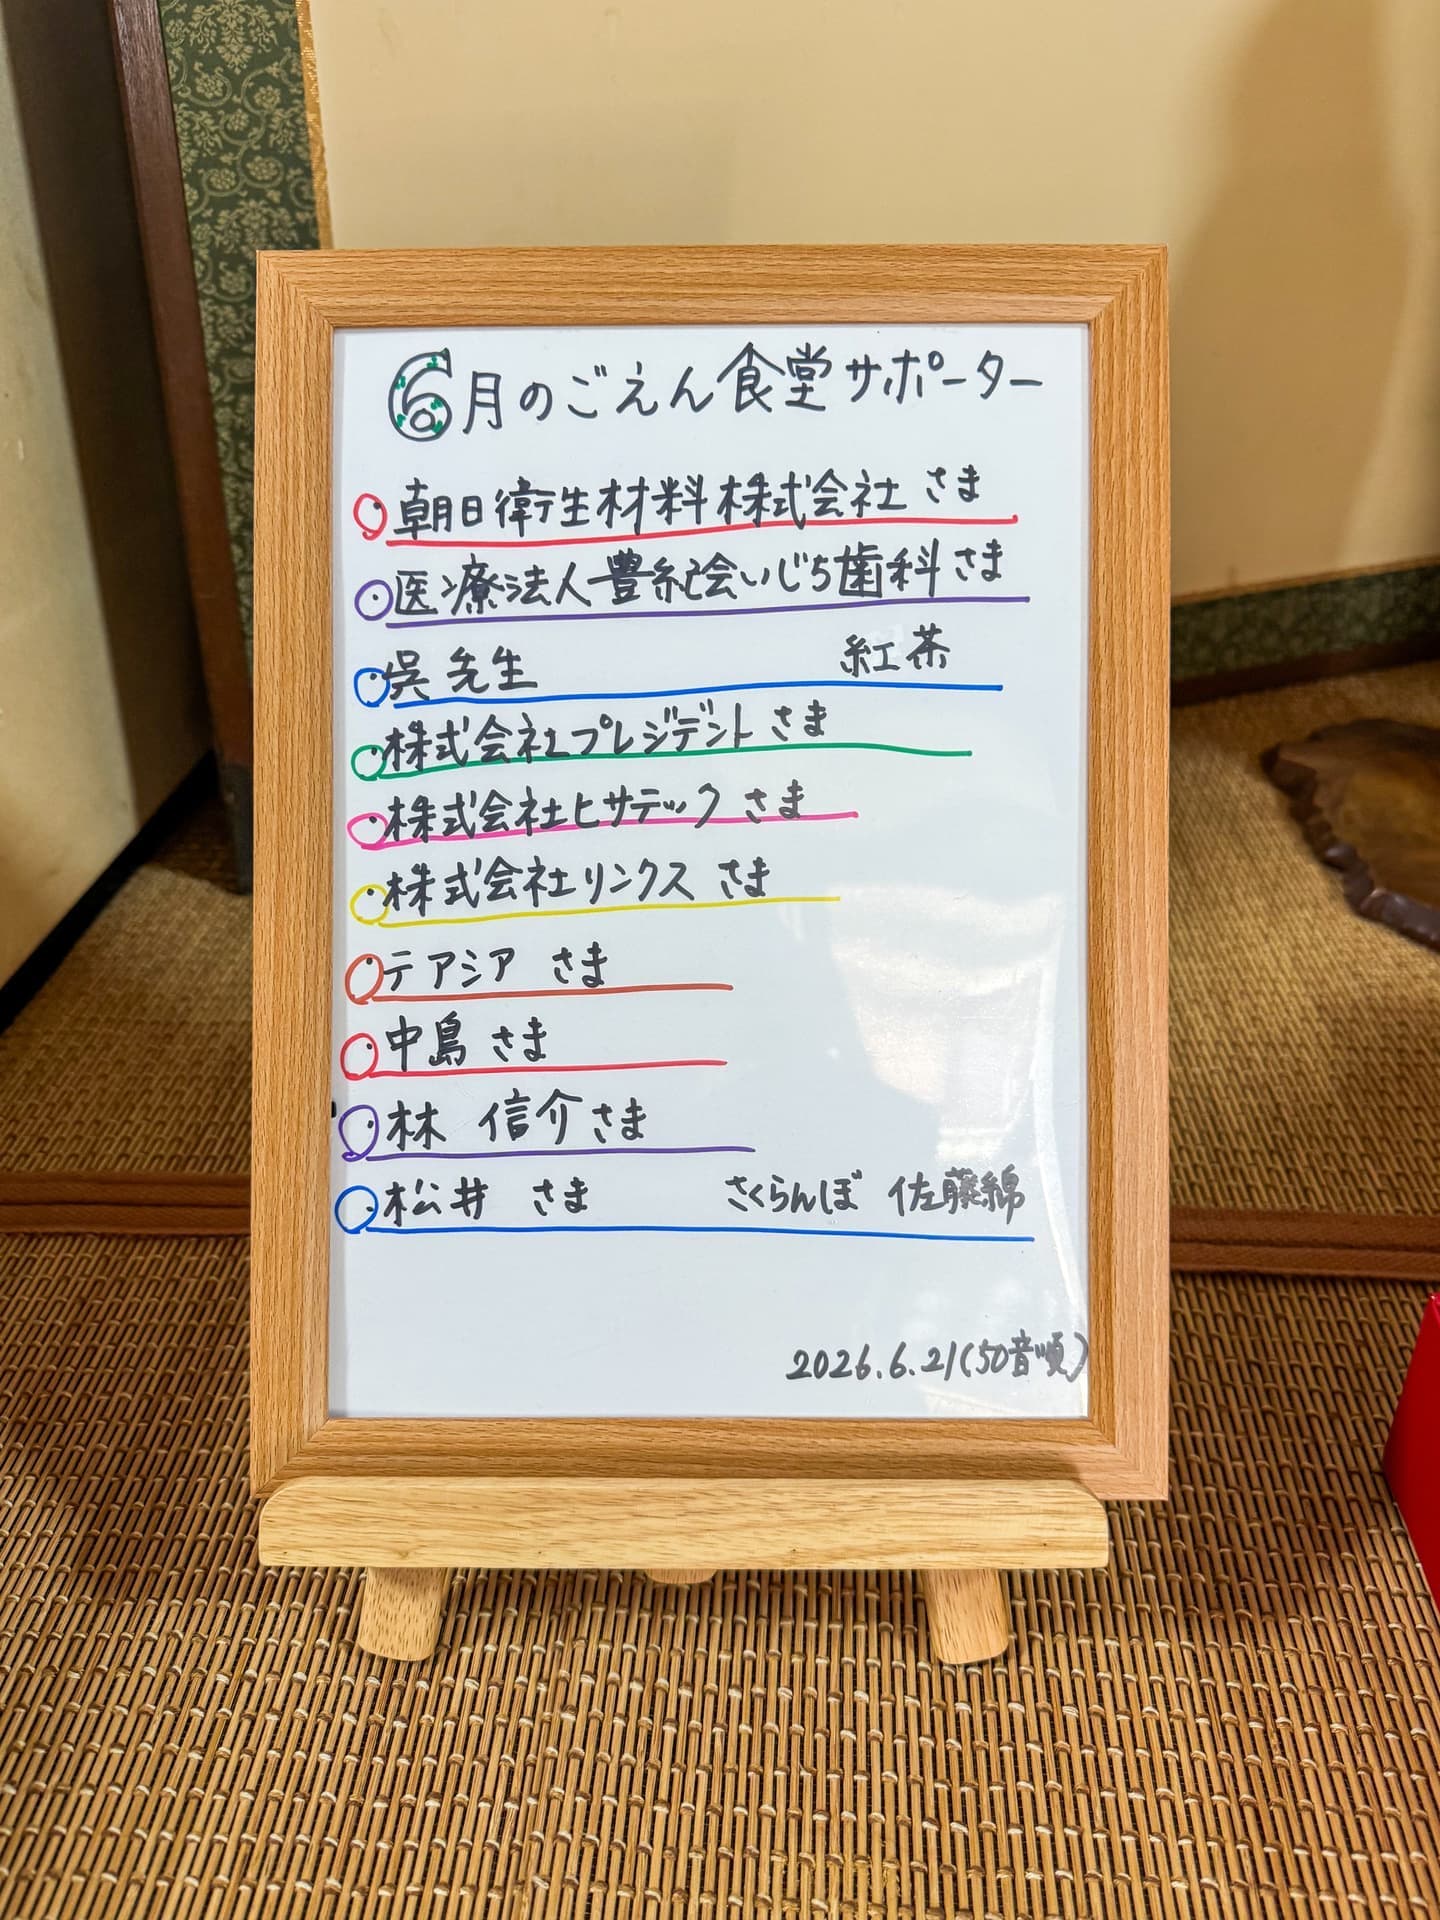 6月のごえん食堂サポーター
朝日衛生材料株式会社 さま
医療法人豊紀会いじち歯科さま
呉先生 紅茶
株式会社プレジデント さま
株式会社ヒサテック さま
株式会社リンクス さま
テアシア さま
中島 さま
林 信介さま
松井 さま さくらんぼ 佐藤錦
2026.6.21(50音順)